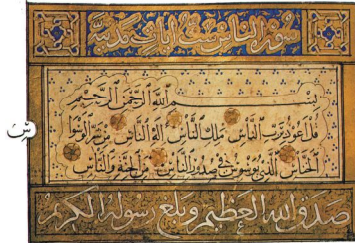 سورة الناس ست آيات مدنية
بسم الله الرحمن الرحيم
قل اعوذ برب الناس ملك الناس اله الناس من شر الوسوا
الخناس الذي يوسوس في صدور الناس من الجنة والناس
صدق الله العظيم وبلغ رسوله الكريم